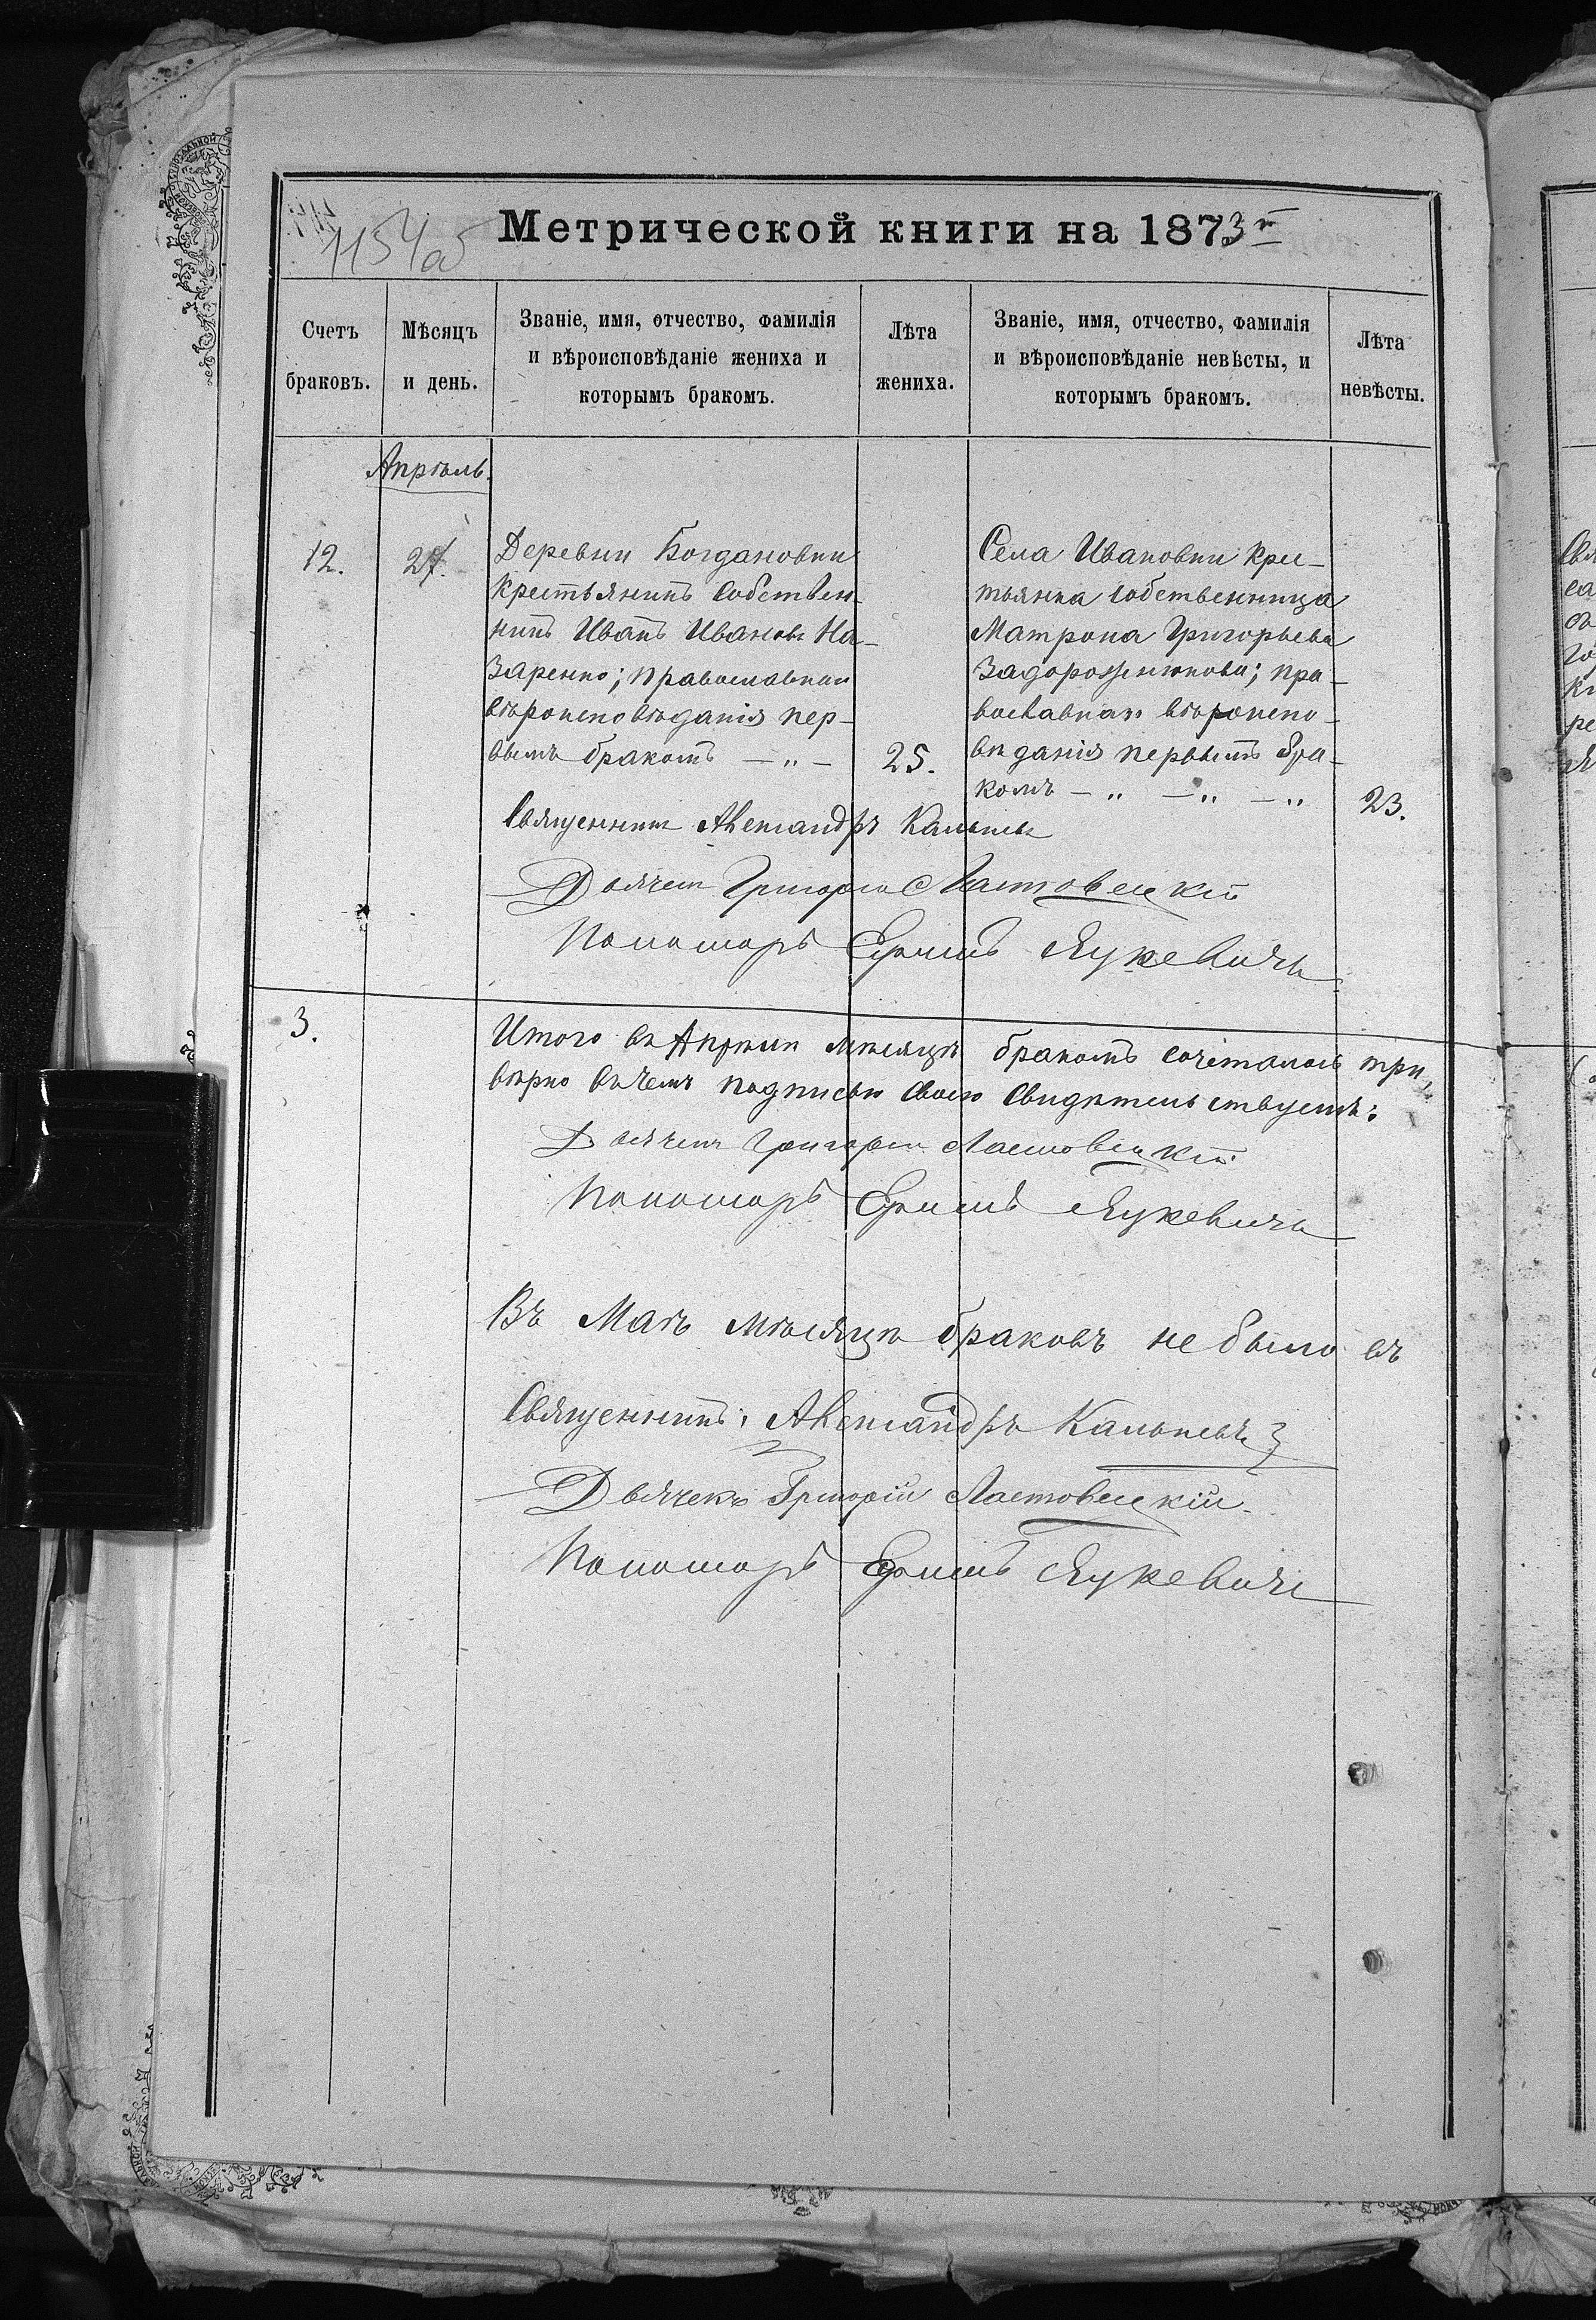 Метрической книги на 1873 г
1154 об
Счетъ браковъ.
Мѣсяцъ и день.
Званіе, имя, отчество, фамилія и вѣроисповѣданіе жениха и которымъ бракомъ.
Лѣта жениха.
Званіе, имя, отчество, фамилія и вѣроисповѣданіе невѣсты, и которымъ бракомъ.
Лѣта невѣсты.
Апрѣль.
12.
27.
Деревни Богдановки
крестьянинъ собствен-
никъ Иванъ Ивановъ На-
заренко; православнаго
вѣроисповѣданія пер-
вымъ бракомъ — „ —
25.
Села Ивановки кре-
стьянка собственница
Матрона Григорьева
Задорожнюкова; пра-
вославнаго вѣроиспо-
вѣданія первымъ бра-
комъ — „ — „ — „
23.
Священникъ Александръ
Дьячекъ Григорій Ластовецкій
Пономарь Лукевичъ
3.
Итого въ Апрѣлѣ мѣсяцѣ бракомъ сочеталось три,
вѣрно въ чемъ подписью своею свидѣтельствуемъ:
Дьячекъ Григорій Ластовецкій
Пономарь Лукевичъ
Въ Маѣ мѣсяцѣ браковъ не было
Священникъ Александръ
Дьячекъ Григорій Ластовецкій
Пономарь Лукевичъ